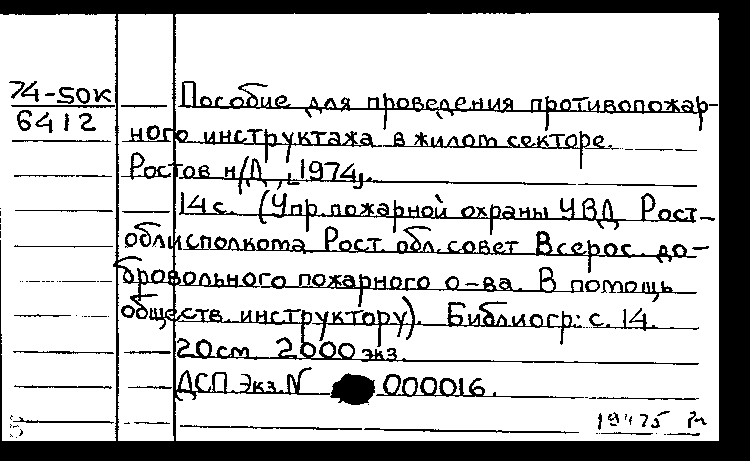 74-50к
6412
Пособие для проведения противопожар-
ного инструктажа в жилом секторе.
Ростов н/Д, [1974].
14с. (Упр. пожарной охраны УВД Рост-
облисполкома Рост. обл. совет Всерос. до-
бровольного пожарного о-ва. В помощь
обществ. инструктору). Библиогр: с. 14.
20см. 2000 экз.
ДСП. Экз. N 000016.